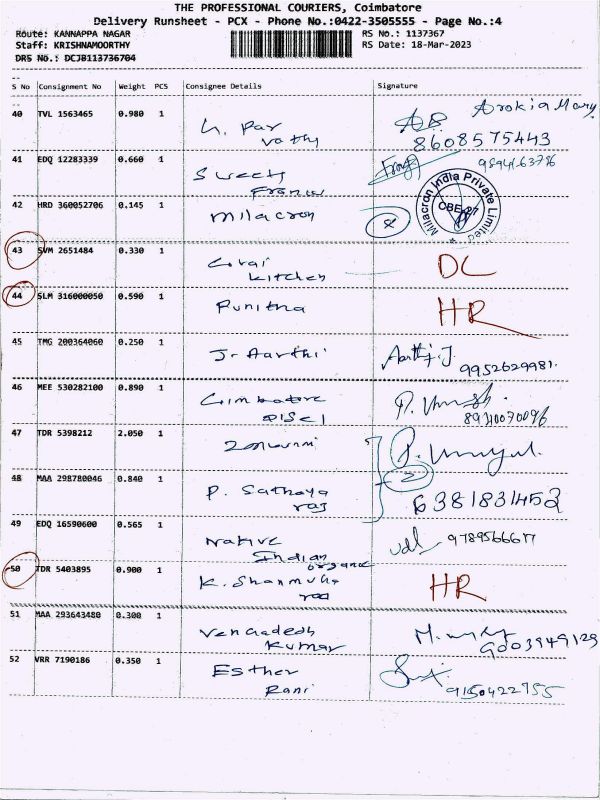 THE PROFESSIONAL COURIERS, Coimbatore
Delivery Runsheet - PCX - Phone No.:0422-3505555 - Page No.:4
Route: KANNAPPA NAGAR
RS No.: 1137367
Staff: KRISHNAMOORTHY
RS Date: 18-Mar-2023
DRS No.: DCJB113736704
S No Consignment No Weight PCS Consignee Details Signature
40 TVL 1563465 0.980 1 Arokia Mary
vathy 8608575443
41 EDQ 12283339 0.660 1 Sweety
42 HRD 360052706 0.145 1 Milacron
Milacron India Private Limited
CBE-27
43 SVM 2651484 0.330 1 Kovai DC
Kitchen
44 SLM 316000050 0.590 1 Punitha HR
45 TMG 200364060 0.250 1 J. Aarthi Aarthi.J.
9952629981.
46 MEE 530282100 0.890 1 Coimbatore
47 TDR 5398212 2.050 1
2
48 MAA 298780046 0.840 1 P. Sathaya
raj 6381831452
49 EDQ 16590600 0.565 1 Native
Indian
organic
50 TDR 5403895 0.900 1 K. Shanmuha HR
51 MAA 293643480 0.300 1 Vengadesh
Kumar 9003949129
52 VRR 7190186 0.350 1 Esther
Rani 9150422755